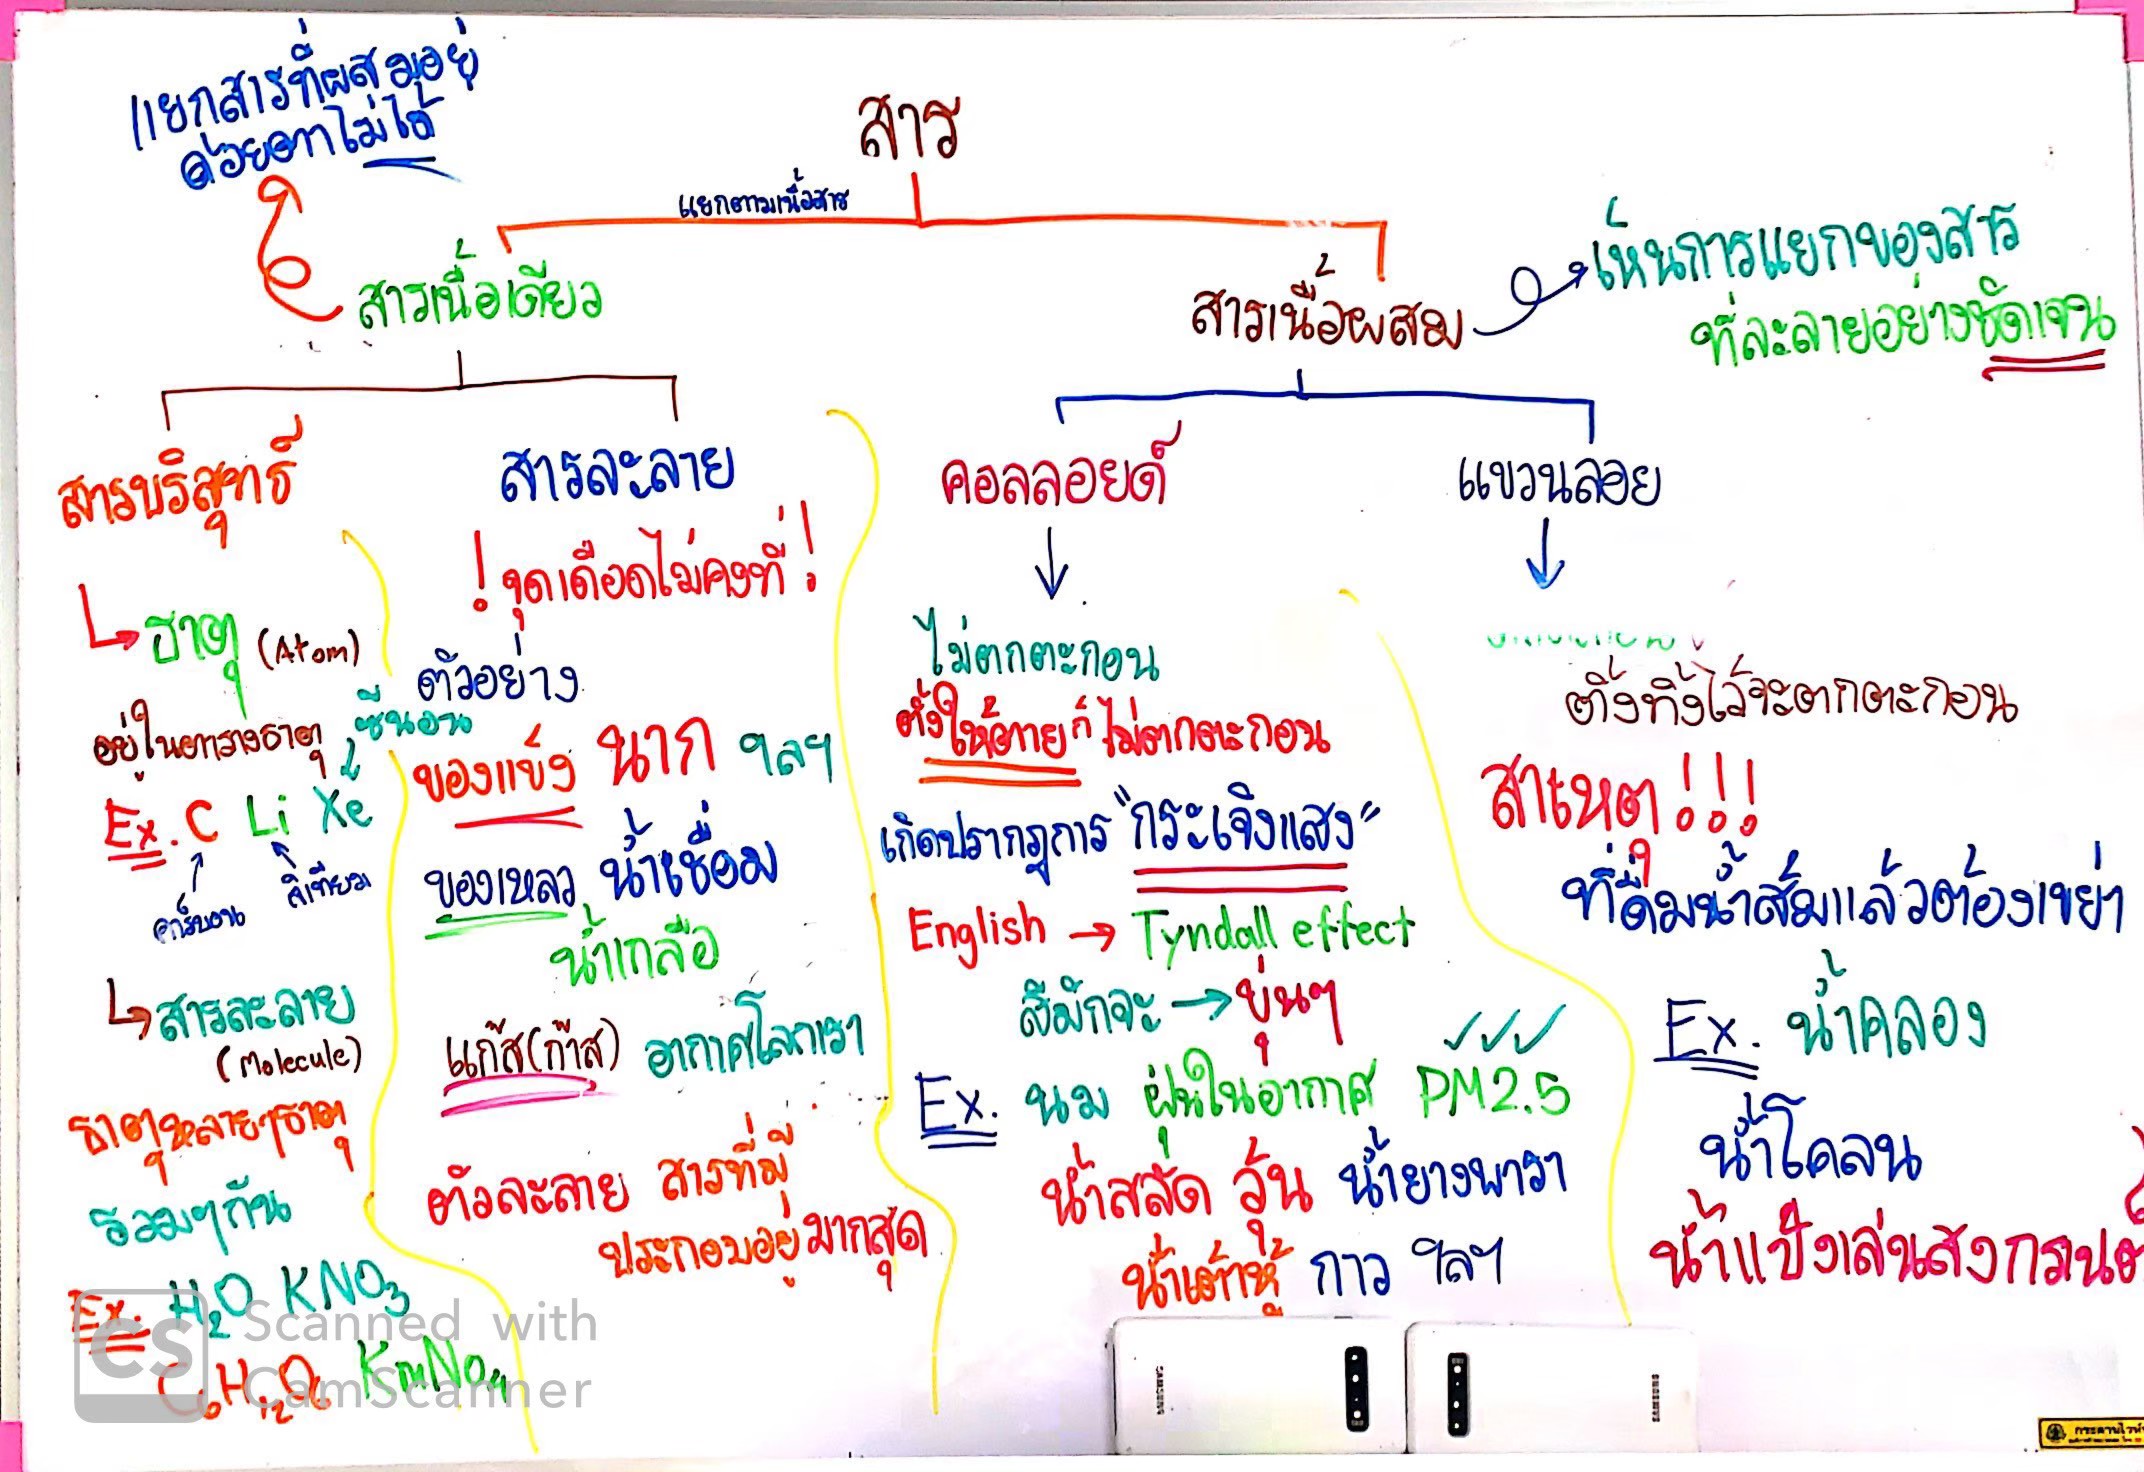 แยกสารที่ผสมอยู่
ด้วยตาไม่ได้
สาร
แยกตามเนื้อสาร
สารเนื้อเดียว
สารเนื้อผสม
เห็นการแยกของสาร
ที่ละลายอย่างชัดเจน
สารบริสุทธิ์
ธาตุ (Atom)
อยู่ในตารางธาตุ
ซีนอน
Ex. C Li Xe
คาร์บอน
ลิเทียม
สารละลาย
(Molecule)
ธาตุหลายๆธาตุ
รวมๆกัน
Ex. H2O KNO3
C6H12O6 KmNO4
สารละลาย
! จุดเดือดไม่คงที่ !
ตัวอย่าง
ของแข็ง นาก ฯลฯ
ของเหลว น้ำเชื่อม
น้ำเกลือ
แก๊ส(ก๊าส) อากาศโลกเรา
ตัวละลาย สารที่มี
ประกอบอยู่มากสุด
คอลลอยด์
ไม่ตกตะกอน
ตั้งให้ตายก็ไม่ตกตะกอน
เกิดปรากฎการ "กระเจิงแสง"
English → Tyndall effect
สีมักจะ → ขุ่นๆ
Ex. นม ฝุ่นในอากาศ PM2.5
น้ำสลัด วุ้น น้ำยางพารา
น้ำเต้าหู้ กาว ฯลฯ
แขวนลอย
ติ้งทิ้งไว้จะตกตะกอน
สาเหตุ!!!
ที่ดื่มน้ำส้มแล้วต้องเขย่า
Ex. น้ำคลอง
น้ำโคลน
น้ำแป้งเล่นสงกรานต
SAMSUNG
SAMSUNG
CS Scanned with
CamScanner